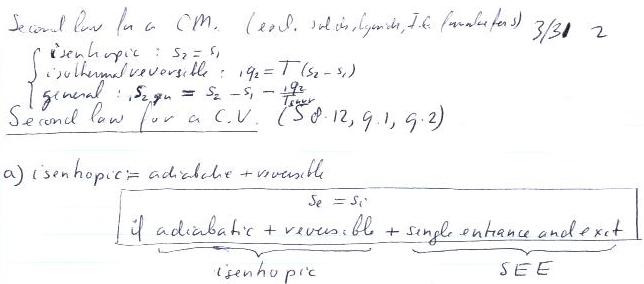 Second law for a CM. (excl. solids, liquids, I.G. ) 3/31 2
isentropic : s₂ = s₁
isothermal reversible : ₁q₂ = T (s₂ - s₁)
general : ₁s₂,gen = s₂ - s₁ - ₁q₂/Tsurr
Second law for a C.V. (§ 8.12, 9.1, 9.2)
a) isentropic = adiabatic + reversible
se = si
if adiabatic + reversible + single entrance and exit
isentropic SEE